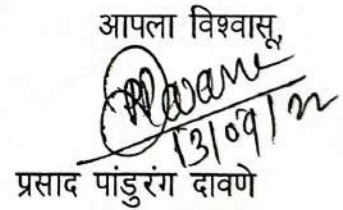 आपला विश्वासू,
13/09/22
प्रसाद पांडुरंग दावणे